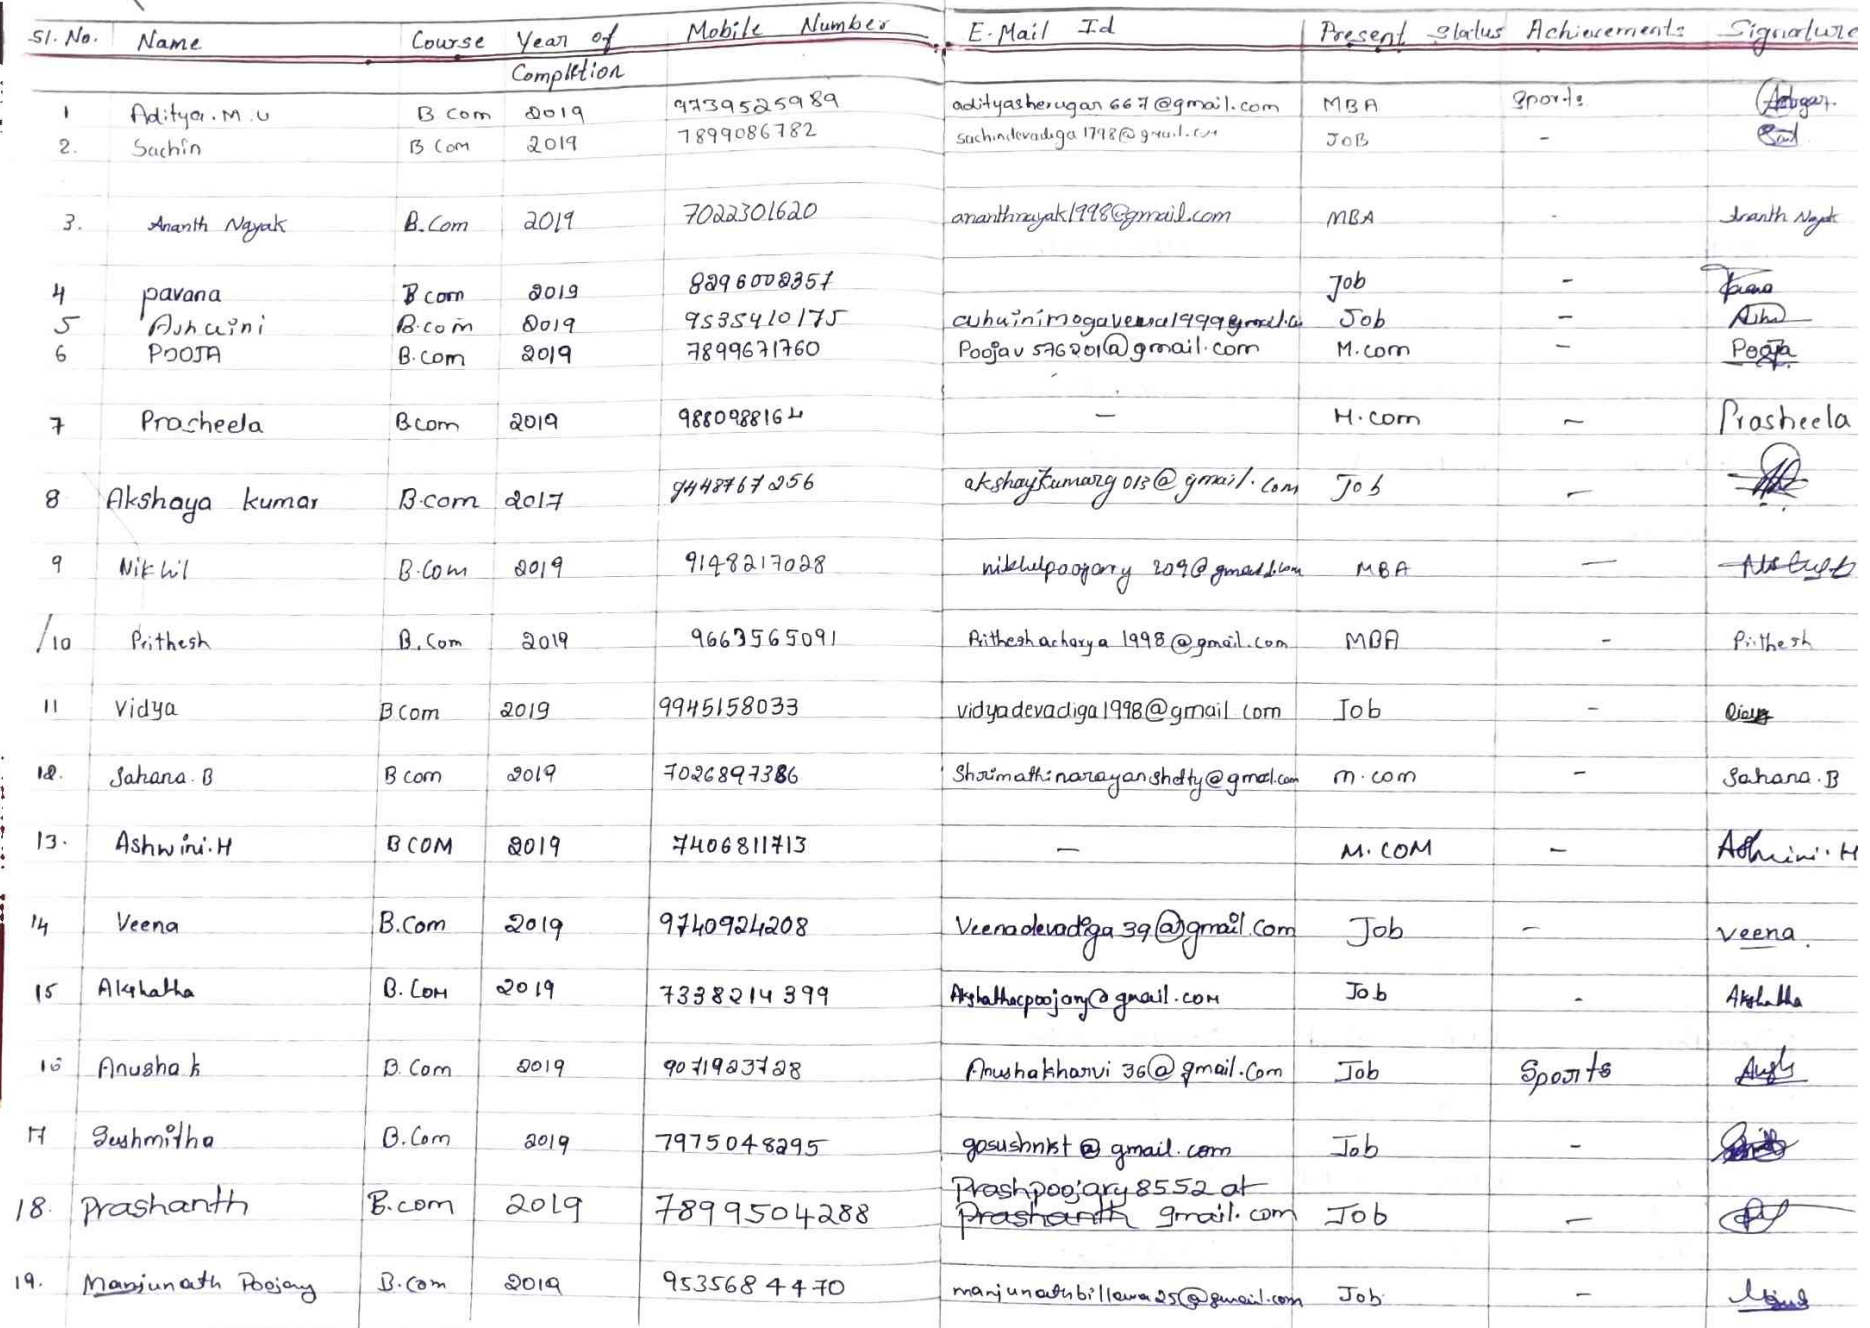 Sl. No. Name Course Year of Completion Mobile Number E-Mail Id Present Status Achievements Signature
1 Aditya. M. U B com 2019 9739525989 adityasherugar667@gmail.com MBA Sports
2. Sachin B Com 2019 7899086782 sachindevadiga1798@gmail.com JOB -
3. Ananth Nayak B.Com 2019 7022301620 ananthnayak1998@gmail.com MBA - Ananth Nayak
4 pavana B com 2019 8296002357 Job -
5 Ashwini B.com 2019 9535410175 Job -
6 POOJA B.com 2019 7899671760 Poojav576201@gmail.com M.com - Pooja
7 Prasheela Bcom 2019 9880988164 - M.com - Prasheela
8 Akshaya kumar B.com 2017 9448767256 akshaykumarg013@gmail.com Job -
9 Nikhil B.Com 2019 9148217028 nikhilpoojary209@gmail.com MBA -
/10 Prithesh B.Com 2019 9663565091 Pritheshacharya1998@gmail.com MBA - Prithesh
11 Vidya B com 2019 9945158033 vidyadevadiga1998@gmail com Job -
12. Sahana. B B com 2019 7026897386 Shrimathinarayanshetty@gmail.com m.com - Sahana. B
13. Ashwini. H B COM 2019 7406811713 - M. COM - Ashwini. H
14 Veena B.Com 2019 9740924208 Veenadevadiga39@gmail.com Job - veena.
15 Akshatha B. Com 2019 7338214399 Akshathacpoojary@gmail.com Job - Akshatha
16 Anusha k B. Com 2019 9071923728 Anushakharvi36@gmail.com Job Sports
17 Sushmitha B.Com 2019 7975048295 gmail.com Job -
18. Prashanth B.com 2019 7899504288 Prashpoojary8552 at Prashanth gmail.com Job -
19. Manjunath Poojary B.Com 2019 9535684470 manjunathbillawa25@gmail.com Job -